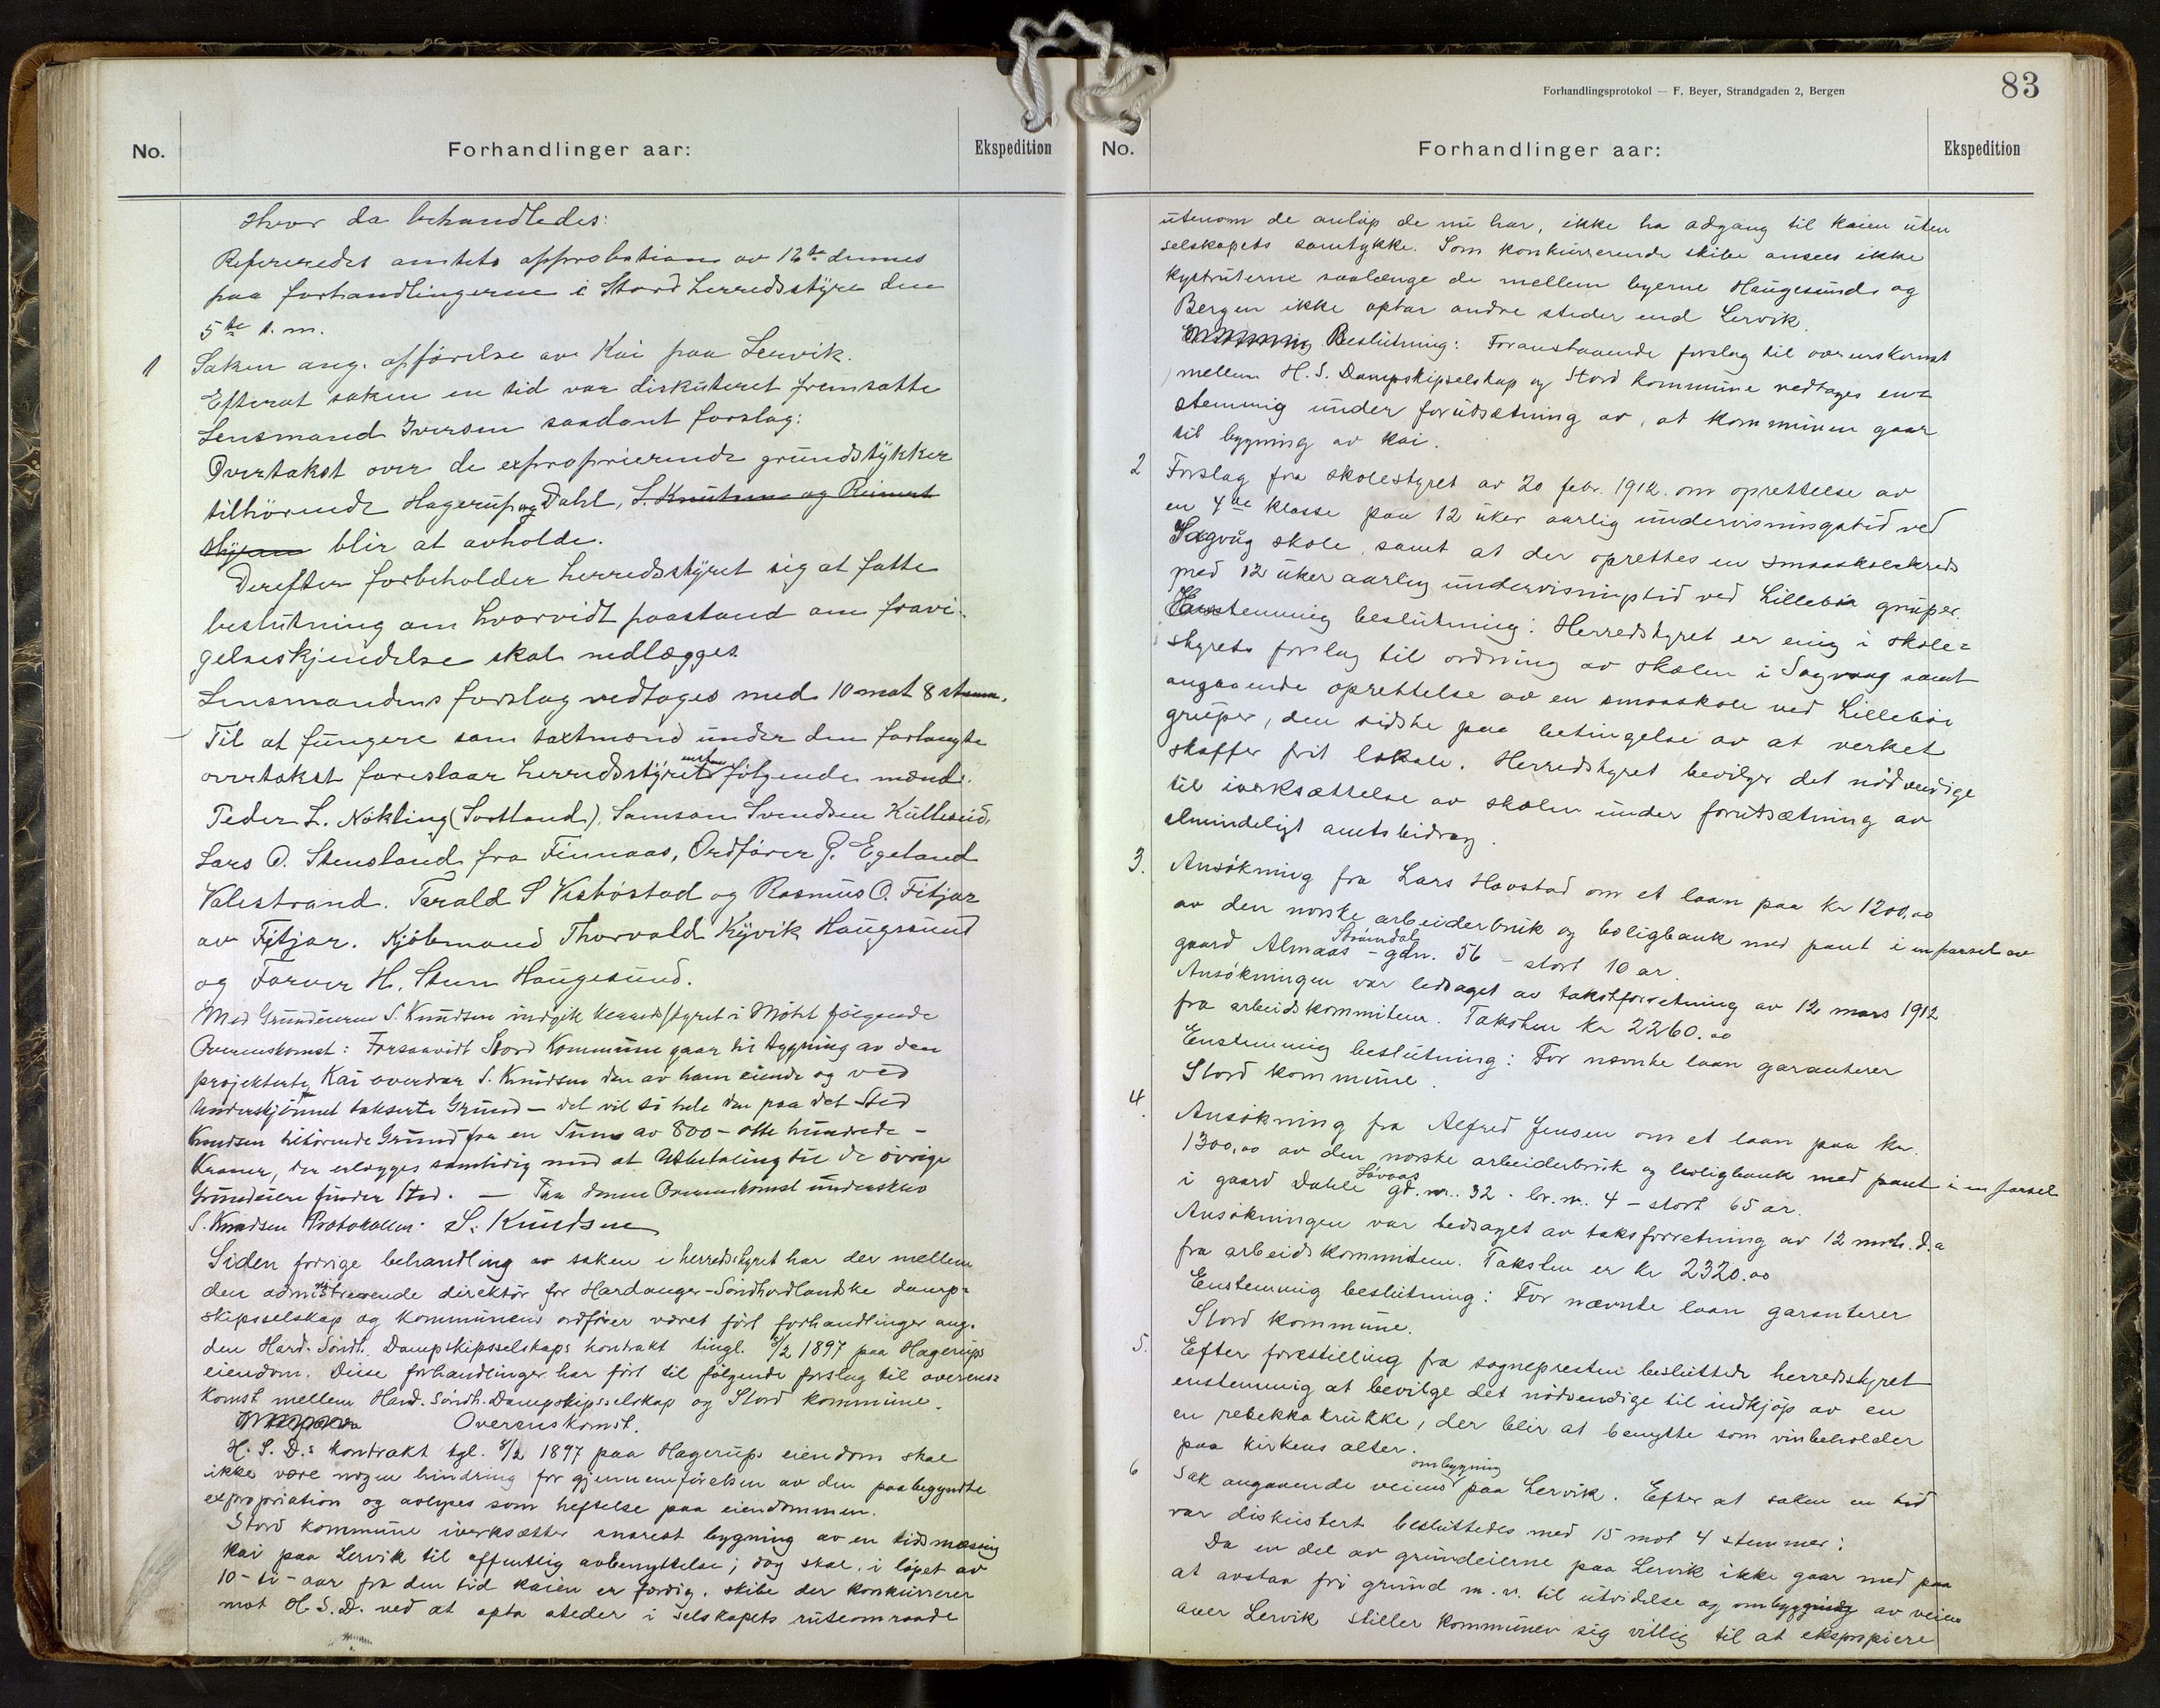 No.
Forhandlinger aar:
Ekspedition
Hvor da behandledes:
Refereredes amtets approbation av 12te dennes
paa forhandlingerne i Stord herredsstyre den
5te s.m.
1 Saken ang. opförelse av Kai paa Lervik.
Efterat saken en tid var diskuteret fremsatte
Lensmand Iversen saadant forslag:
Overtakst over de exproprierende grundstykker
tilhörende Hagerup og Dahl, S. Knutsen og Reinert
blir at avholde.
Derefter forbeholder herredsstyret sig at fatte
beslutning om hvorvidt paastand om fravi-
gelseskjendelse skal nedlægges.
Lensmandens forslag vedtages med 10 mot 8 stem.
Til at fungere som taxtmænd under den forlangte
overtakst foreslaar herredsstyret følgende mænd:
Peder L. Nökling (Sortland), Samson Svendsen Kulleseid,
Lars O. Stensland fra Finnaas, Ordförer G. Egeland
Valestrand. Tarald S Vestbøstad og Rasmus O. Fitjar
av Fitjar. Kjöbmand Thorvald Kyvik Haugesund
og Farver H. Steen Haugesund.
Med Grundeieren S. Knudsen indgik Herredsstyret i Mötet følgende
Overenskomst: Forsaavidt Stord Kommune gaar til bygning av den
projekterte Kai overdrar S. Knudsen den av ham eiende og ved
Underskjönnet takserte Grund – det vil si hele den paa det Sted
Knudsen tilhörende Grund for en Sum av 800 – otte hundrede –
Kroner, der erlægges samtidig med at Utbetaling til de övrige
Grundeiere finder Sted. — Paa denne Overenskomst underskrev
S. Knudsen Protokollen. S. Knudsen
Siden forrige behandling av saken i herredsstyret har der mellem
den administrerende direktör for Hardanger-Söndhordlandske damp-
skipsselskap og kommunens ordfører været fört forhandlinger ang.
den Hard. Söndh. Dampskipsselskaps kontrakt tingl. 8/2 1897 paa Hagerups
eiendom. Disse forhandlinger har fört til følgende forslag til overens=
komst mellem Hard. Söndh. Dampskipsselskap og Stord kommune.
Overenskomst.
H. S. D.s kontrakt tgl. 8/2 1897 paa Hagerups eiendom skal
ikke være nogen hindring for gjennemförelsen av den paabegyndte
expropriation og avlyses som heftelse paa eiendommen.
Stord kommune iverksætter snarest bygning av en tidsmæssig
kai paa Lervik til offentlig avbenyttelse; dog skal, i löpet av
10 – ti – aar fra den tid kaien er færdig, skibe der konkurrerer
mot H. S. D. ved at opta steder i selskapets ruteomraade
Forhandlingsprotokol — F. Beyer, Strandgaden 2, Bergen
83
No.
Forhandlinger aar:
Ekspedition
utenom de anlöp de nu har, ikke ha adgang til kaien uten
selskapets samtykke. Som konkurrerende skibe ansees ikke
kystruterne saalænge de mellem byerne Haugesund og
Bergen ikke optar andre steder end Lervik.
Beslutning: Foranstaaende forslag til overenskomst
mellem H. S. Dampskipselskap og Stord kommune vedtages en=
stemmig under forutsætning av, at kommunen gaar
til bygning av kai.
2 Forslag fra skolestyret av 20 febr. 1912 om oprettelse av
en 4de klasse paa 12 uker aarlig undervisningstid ved
Sagvåg skole, samt at der oprettes en smaaskolekreds
med 12 uker aarlig undervisningstid ved Lillebö gruper.
Enstemmig beslutning: Herredstyret er enig i skole=
styrets forslag til ordning av skolen i Sagvaag samt
angaaende oprettelse av en smaaskole ved Lillebö
gruper, den sidste paa betingelse av at verket
skaffer frit lokale. Herredstyret bevilger det nödvendige
til iverksættelse av skolen under forutsætning av
almindeligt amtsbidrag.
3. Ansökning fra Lars Hovstad om et laan paa kr 1200,00
av den norske arbeiderbruk og boligbank med pant i en parsel av
Strömdal
gaard Almaas – gdn. 56 – stort 10 ar.
Ansökningen var ledsaget av takstforretning av 12 mars 1912
fra arbeidskommiteen. Taksten kr 2260.00
Enstemmig beslutning: For nævnte laan garanterer
Stord kommune.
4. Ansökning fra Alfred Jensen om et laan paa kr.
1300,00 av den norske arbeiderbruk og boligbank med pant i en parsel
Lövaas
i gaard Dahle gd. nr. 32 – br. nr. 4 – stort 65 ar.
Ansökningen var ledsaget av taksforretning av 12 mrts. d.a
fra arbeidskommiteen. Taksten er kr 2320.00
Enstemmig beslutning: For nævnte laan garanterer
Stord kommune.
5. Efter forestilling fra sognepresten besluttede herredsstyret
enstemmig at bevilge det nödvendige til indkjöp av en
en rebekkakrukke, der blir at benytte som vinbeholder
paa kirkens alter.
ombygning
6 Sak angaaende veiens paa Lervik. Efter at saken en tid
var diskutert besluttedes med 15 mot 4 stemmer:
Da en del av grundeierne paa Lervik ikke gaar med paa
at avstaa fri grund m.v. til utvidelse og ombygning av veien
over Lervik stiller kommunen sig villig til at ekspropiere